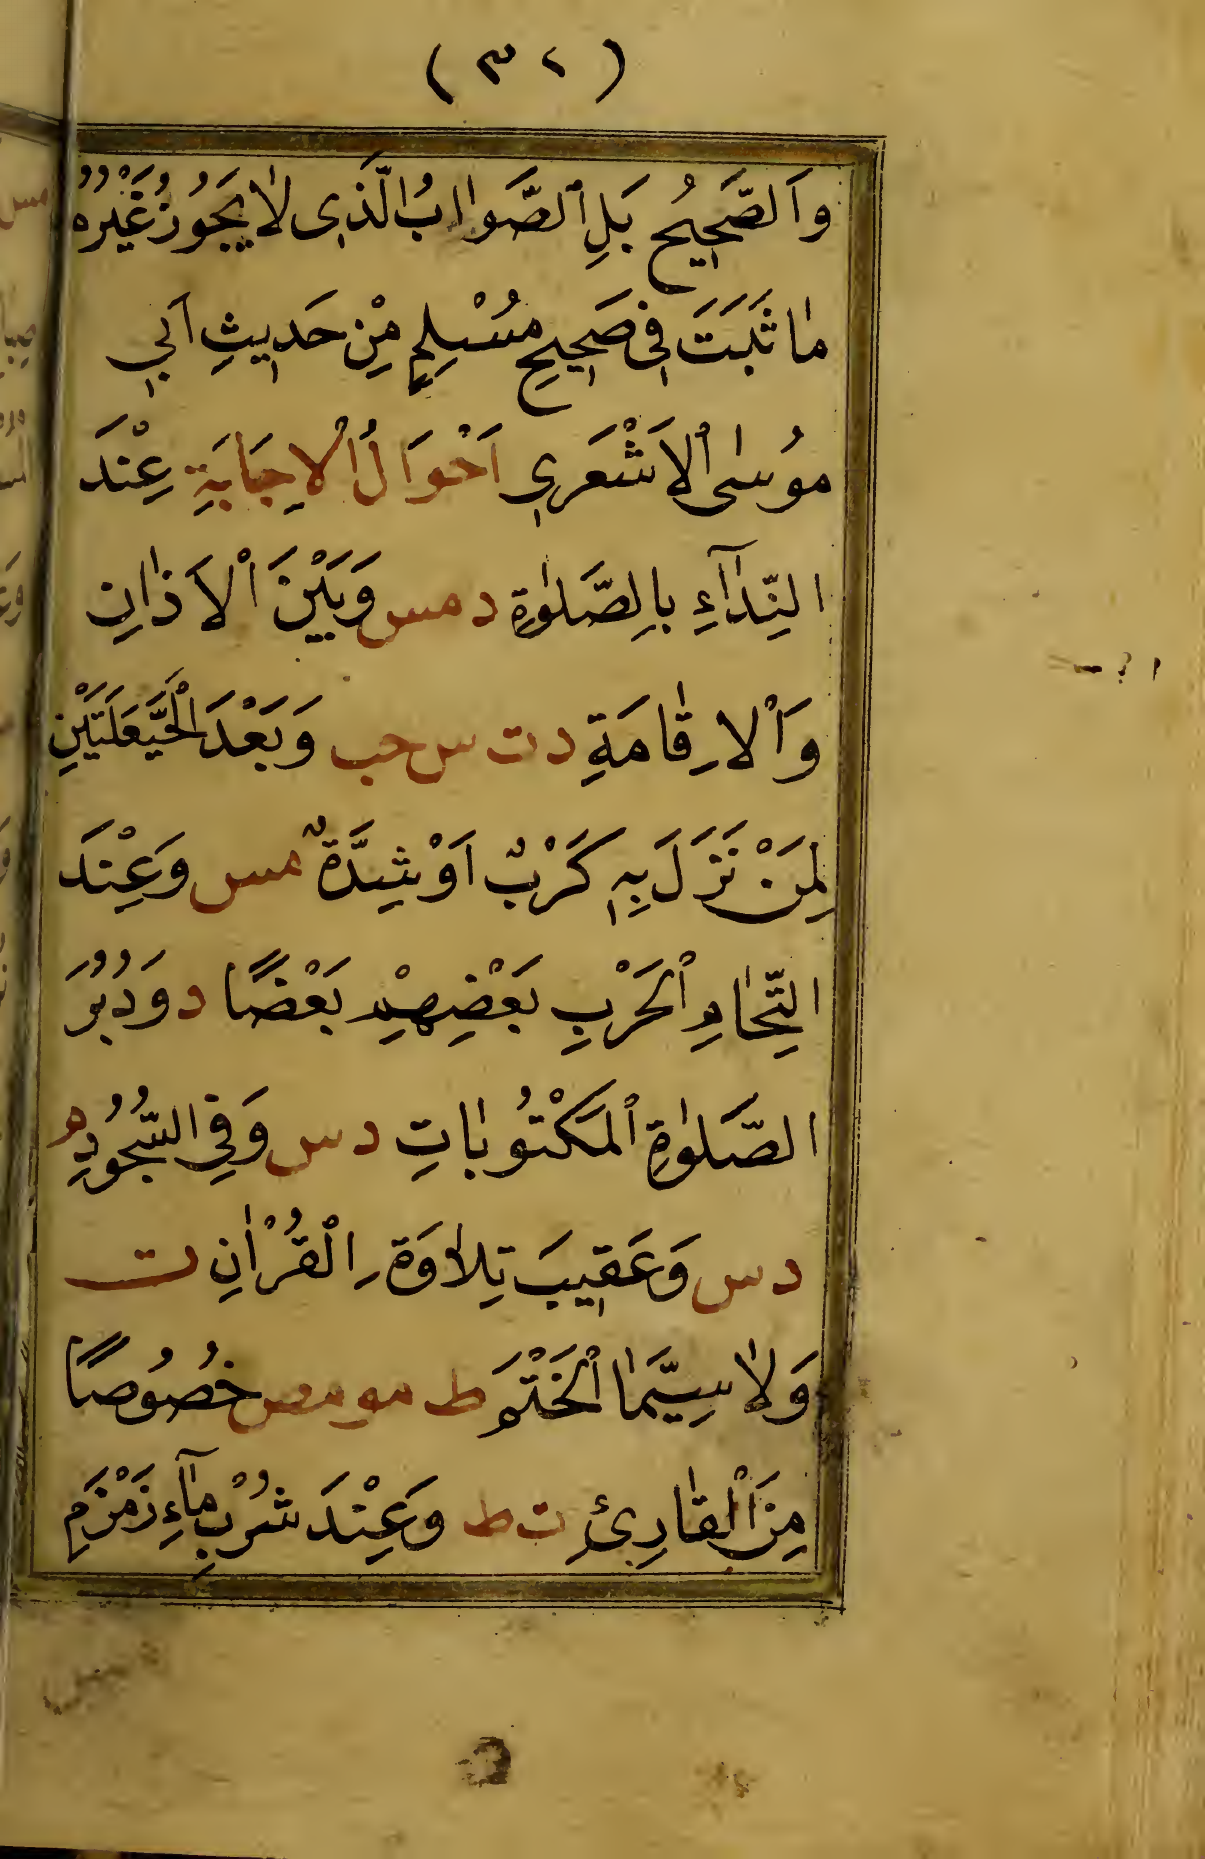 (٣٢)
وَالصَّحِيحُ بَلِ الصَّوَابُ الَّذِي لَا يَجُوزُ غَيْرُهُ
مَا ثَبَتَ فِي صَحِيحِ مُسْلِمٍ مِنْ حَدِيثِ اَبِي
مُوسَى الْاَشْعَرِي اَحْوَالُ الْاِجَابَةِ عِنْدَ
النِّدَآءِ بِالصَّلٰوةِ د مس وَبَيْنَ الْاَذَانِ
وَالْاِقَامَةِ د ت س حب وَبَعْدَ الْحَيَّعَلَتَيْنِ
لِمَنْ نَزَلَ بِهِ كَرْبٌ اَوْ شِدَّةٌ مس وَعِنْدَ
الْتِحَامِ الْحَرْبِ بَعْضِهِمْ بَعْضًا د وَدُبُرَ
الصَّلٰوةِ الْمَكْتُوبَاتِ د س وَفِي السُّجُودِ م
د س وَعَقِيبَ تِلَاوَةِ الْقُرْاٰنِ ت
وَلَا سِيَّمَا الْخَتْمَ ط مو مص خُصُوصًا
مِنَ الْقَارِئِ ت ط وَعِنْدَ شُرْبِ مَآءِ زَمْزَمَ